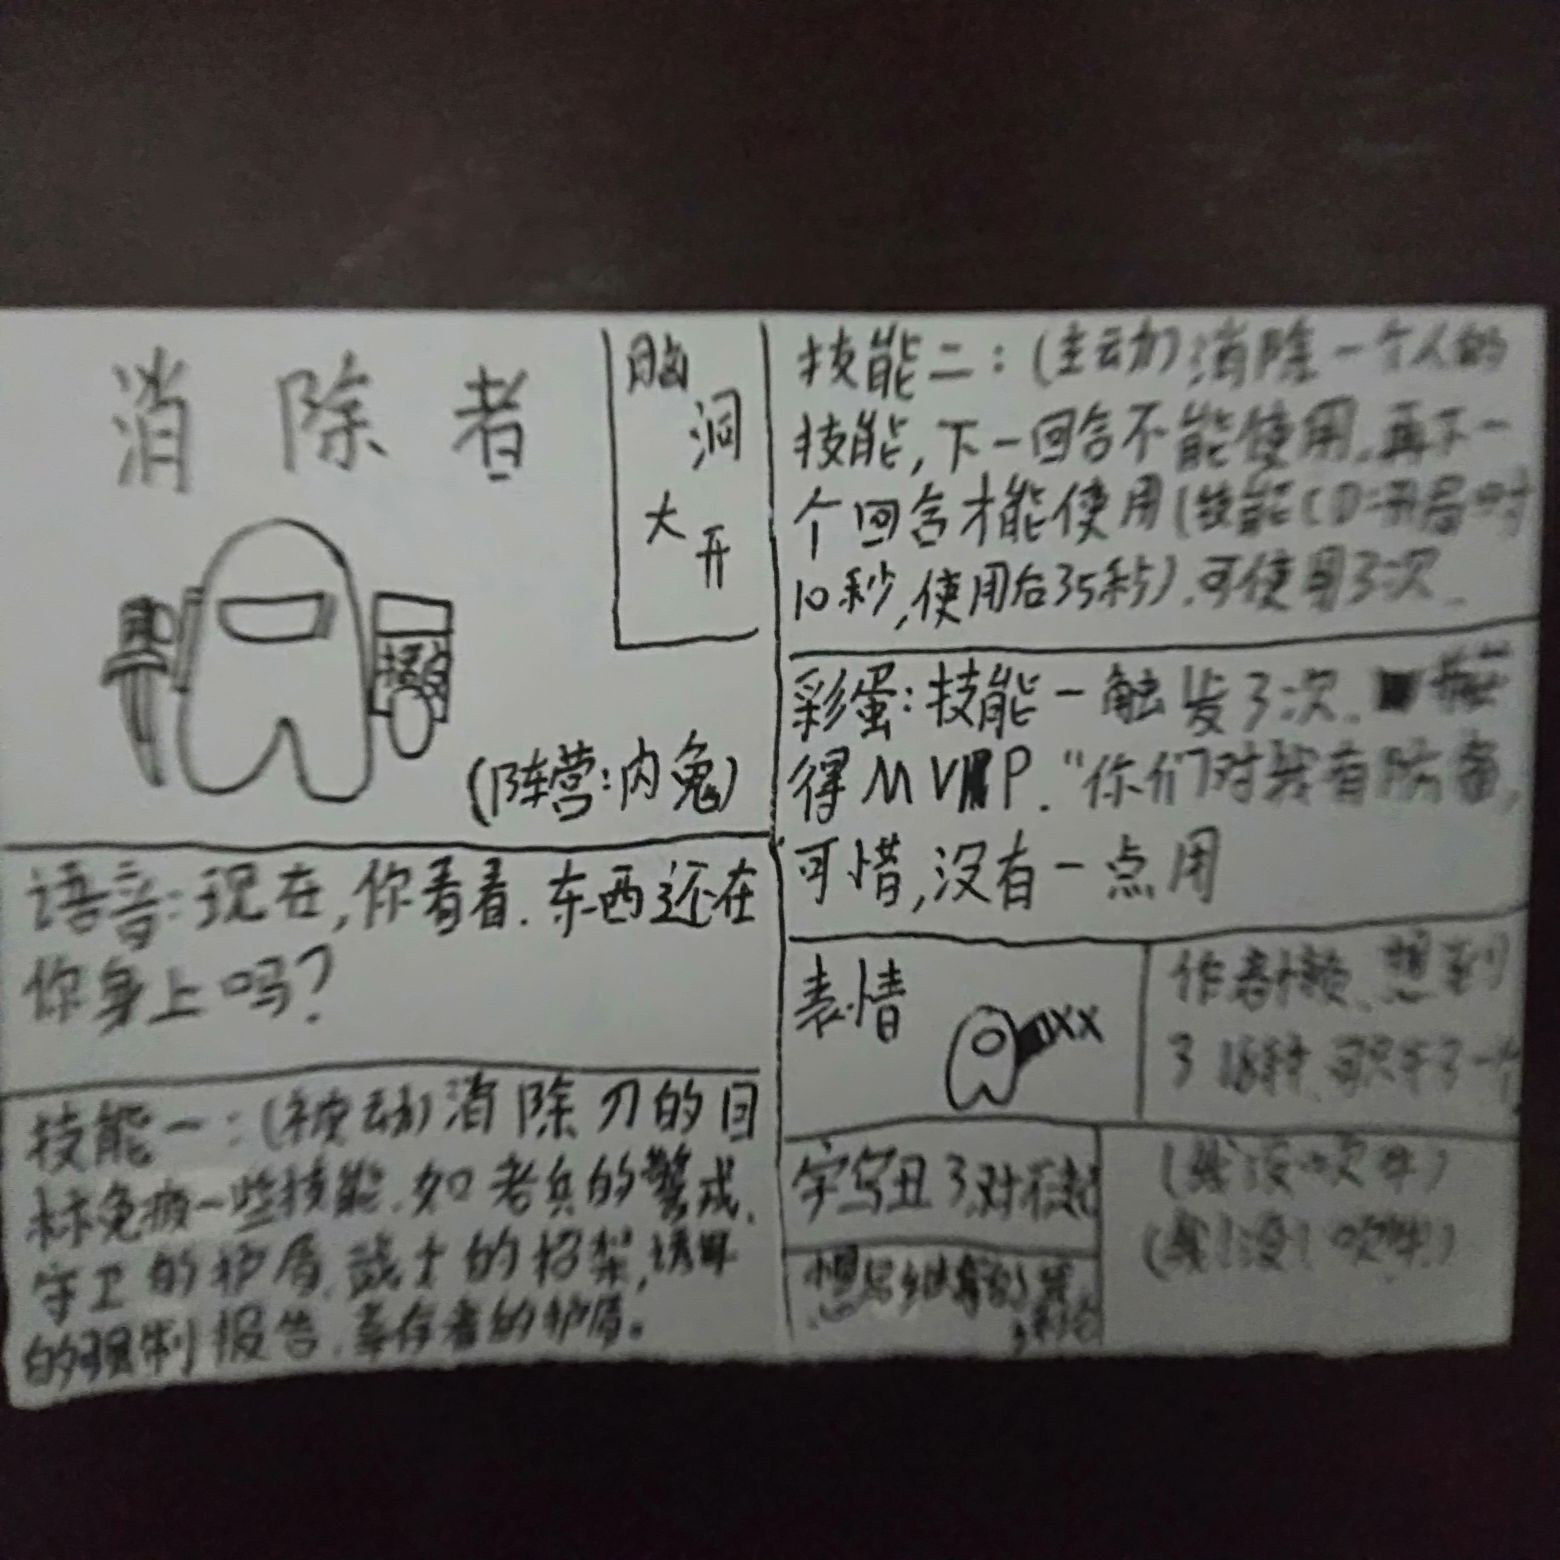 消除者
脑
洞
大
开
(阵营:内鬼)
语音:现在,你看看.东西还在
你身上吗?
技能一:(被动)消除刀的目
标免疫一些技能.如老兵的警戒、
守卫的护盾.战士的格架,诱
的强制报告.幸存者的护盾。
技能二:(主动)消除一个人的
技能,下一回合不能使用.再下一
个回合才能使用(技能CD:开局时
10秒,使用后35秒).可使用3次.
彩蛋:技能一触发3次.获
得MVP."你们对我有防备,
可惜,没有一点用
表情
作者懒、想到
了18种.可只书了一个
字写丑了对不起
(我没吹牛)
(我!没!吹牛)